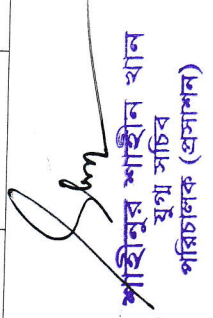 শাহীনুর শাহীন খান
যুগ্ম সচিব
পরিচালক (প্রশাসন)